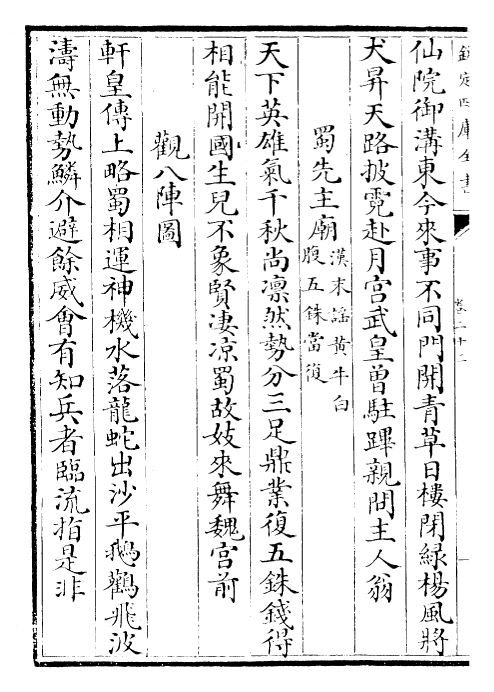 欽定四庫全書
卷二十二
仙院御溝東今來事不同門開青草日樓閉緑楊風將
犬昇天路披霓赴月宮武皇曾駐蹕親問主人翁
蜀先主廟漢末謡黄牛白
腹五銖當復
天下英雄氣千秋尚凛然勢分三足鼎業復五銖錢得
相能開國生兒不象賢凄凉蜀故妓來舞魏宫前
觀八陣圖
軒皇傳上略蜀相運神機水落龍蛇出沙平鵝鸛飛波
濤無動勢鱗介避餘威會有知兵者臨流指是非